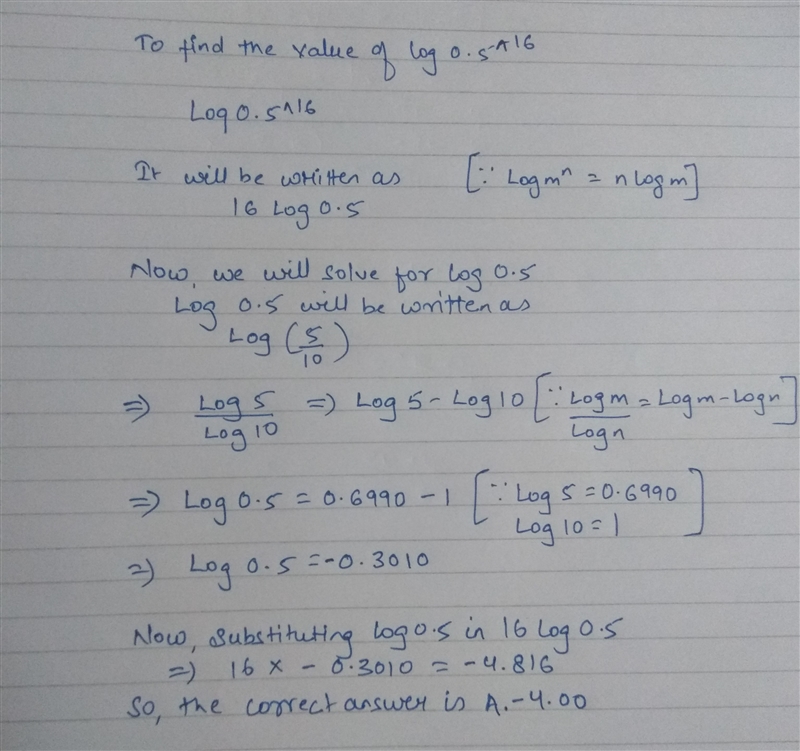 To find the value of log 0.5^16
Log 0.5^16
It will be written as [∵ Log mⁿ = n Log m]
16 Log 0.5
Now, we will solve for log 0.5
Log 0.5 will be written as
Log (5/10)
⇒ Log 5/Log 10 ⇒ Log 5 - Log 10 [∵ Log m/Log n = Log m - Log n]
⇒ Log 0.5 = 0.6990 - 1 [∵ Log 5 = 0.6990
Log 10 = 1]
⇒ Log 0.5 = -0.3010
Now, substituting log 0.5 in 16 Log 0.5
⇒ 16 x - 0.3010 = -4.816
So, the correct answer is A. -4.00